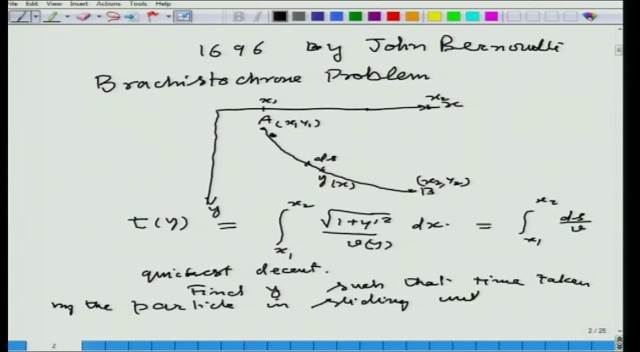 File Edit View Insert Actions Tools Help
1696 by John Bernoulli
Brachistochrone Problem
x₁ x₂ x
A (x₁, y₁)
ds
y(x)
(x₂, y₂)
B
y
t(y) = ∫_{x₁}^{x₂} √(1+y'²) / v(y) dx = ∫_{x₁}^{x₂} ds/v
quickest decent.
Find y such that time taken
by the particle in sliding
2 / 25
2